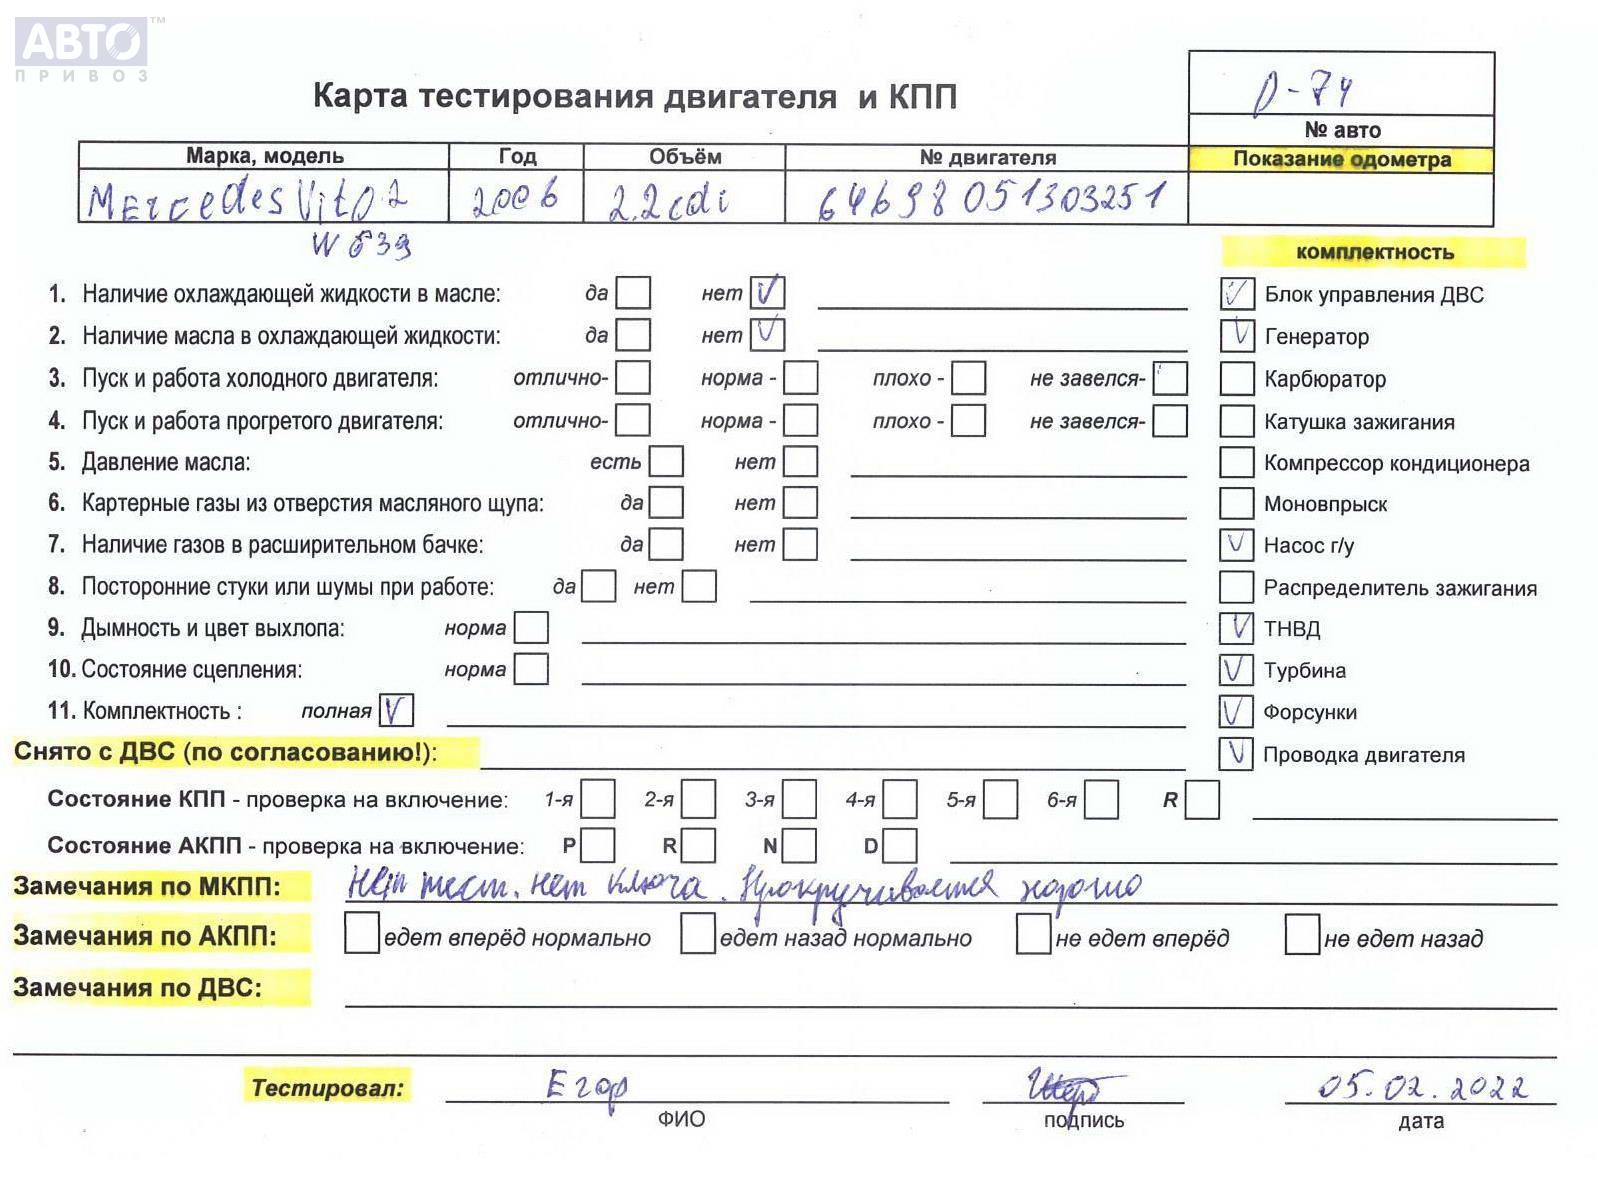 АВТО™
ПРИВОЗ
Карта тестирования двигателя и КПП
D-74
№ авто
Марка, модель Год Объём № двигателя Показание одометра
Mercedes Vito 2 2006 2.2cdi 64698051303251
W639
комплектность
1. Наличие охлаждающей жидкости в масле: да нет V V Блок управления ДВС
2. Наличие масла в охлаждающей жидкости: да нет V V Генератор
3. Пуск и работа холодного двигателя: отлично- норма - плохо - не завелся- Карбюратор
4. Пуск и работа прогретого двигателя: отлично- норма - плохо - не завелся- Катушка зажигания
5. Давление масла: есть нет Компрессор кондиционера
6. Картерные газы из отверстия масляного щупа: да нет Моновпрыск
7. Наличие газов в расширительном бачке: да нет V Насос г/у
8. Посторонние стуки или шумы при работе: да нет Распределитель зажигания
9. Дымность и цвет выхлопа: норма V ТНВД
10. Состояние сцепления: норма V Турбина
11. Комплектность : полная V V Форсунки
Снято с ДВС (по согласованию!): V Проводка двигателя
Состояние КПП - проверка на включение: 1-я 2-я 3-я 4-я 5-я 6-я R
Состояние АКПП - проверка на включение: P R N D
Замечания по МКПП: Нет тест. нет ключа. Прокручивается хорошо
Замечания по АКПП: едет вперёд нормально едет назад нормально не едет вперёд не едет назад
Замечания по ДВС:
Тестировал: Егор 05.02.2022
ФИО подпись дата